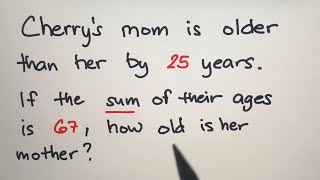 Cherry's mom is older
than her by 25 years.
If the sum of their ages
is 67, how old is her
mother?